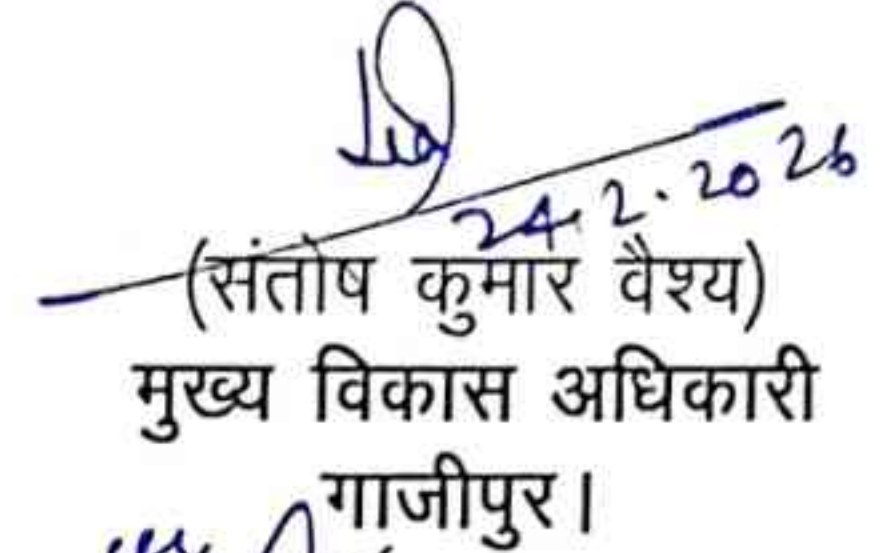 24.2.2026
(संतोष कुमार वैश्य)
मुख्य विकास अधिकारी
गाजीपुर।